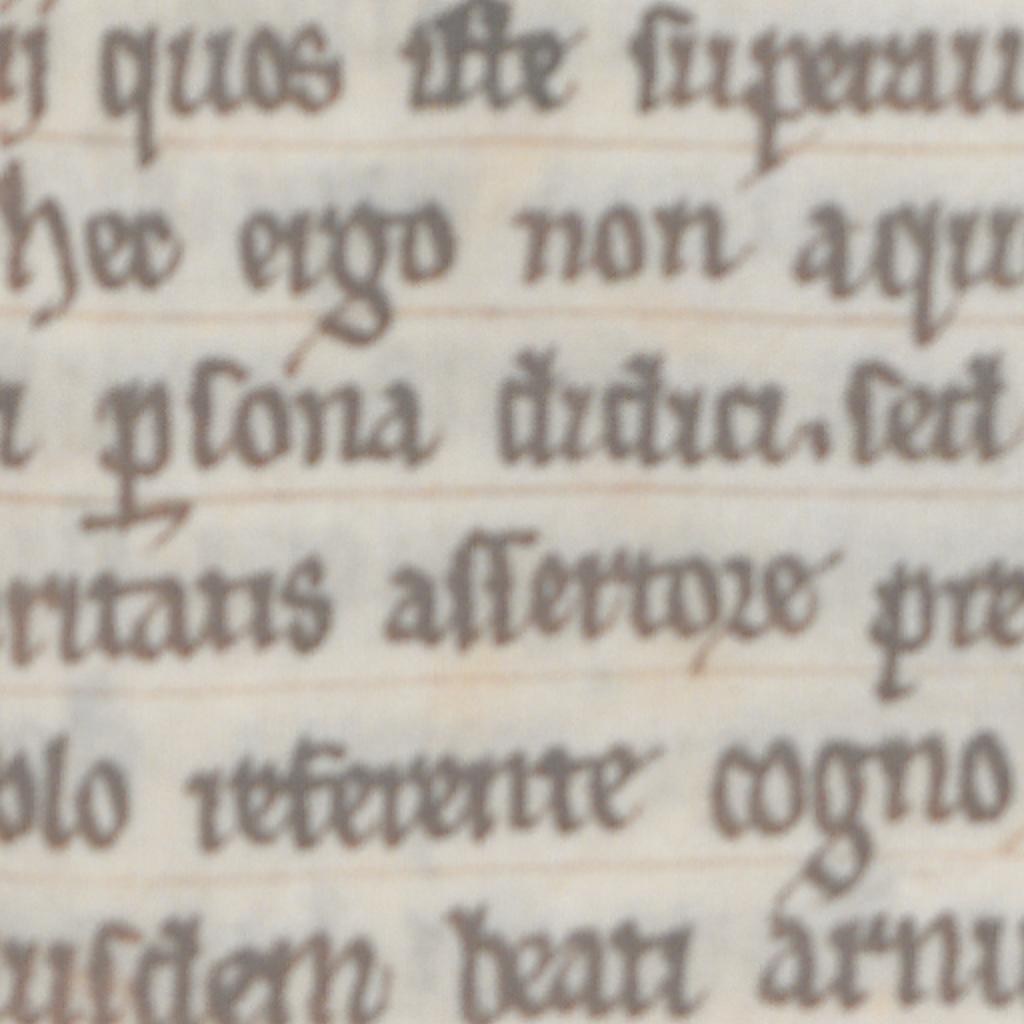 ij quos iſte ſuperau
hec ergo non aqu
a ꝑſona didici. ſed
ritatis aſſertore pre
olo referente cogno
uiſdem beati arnu